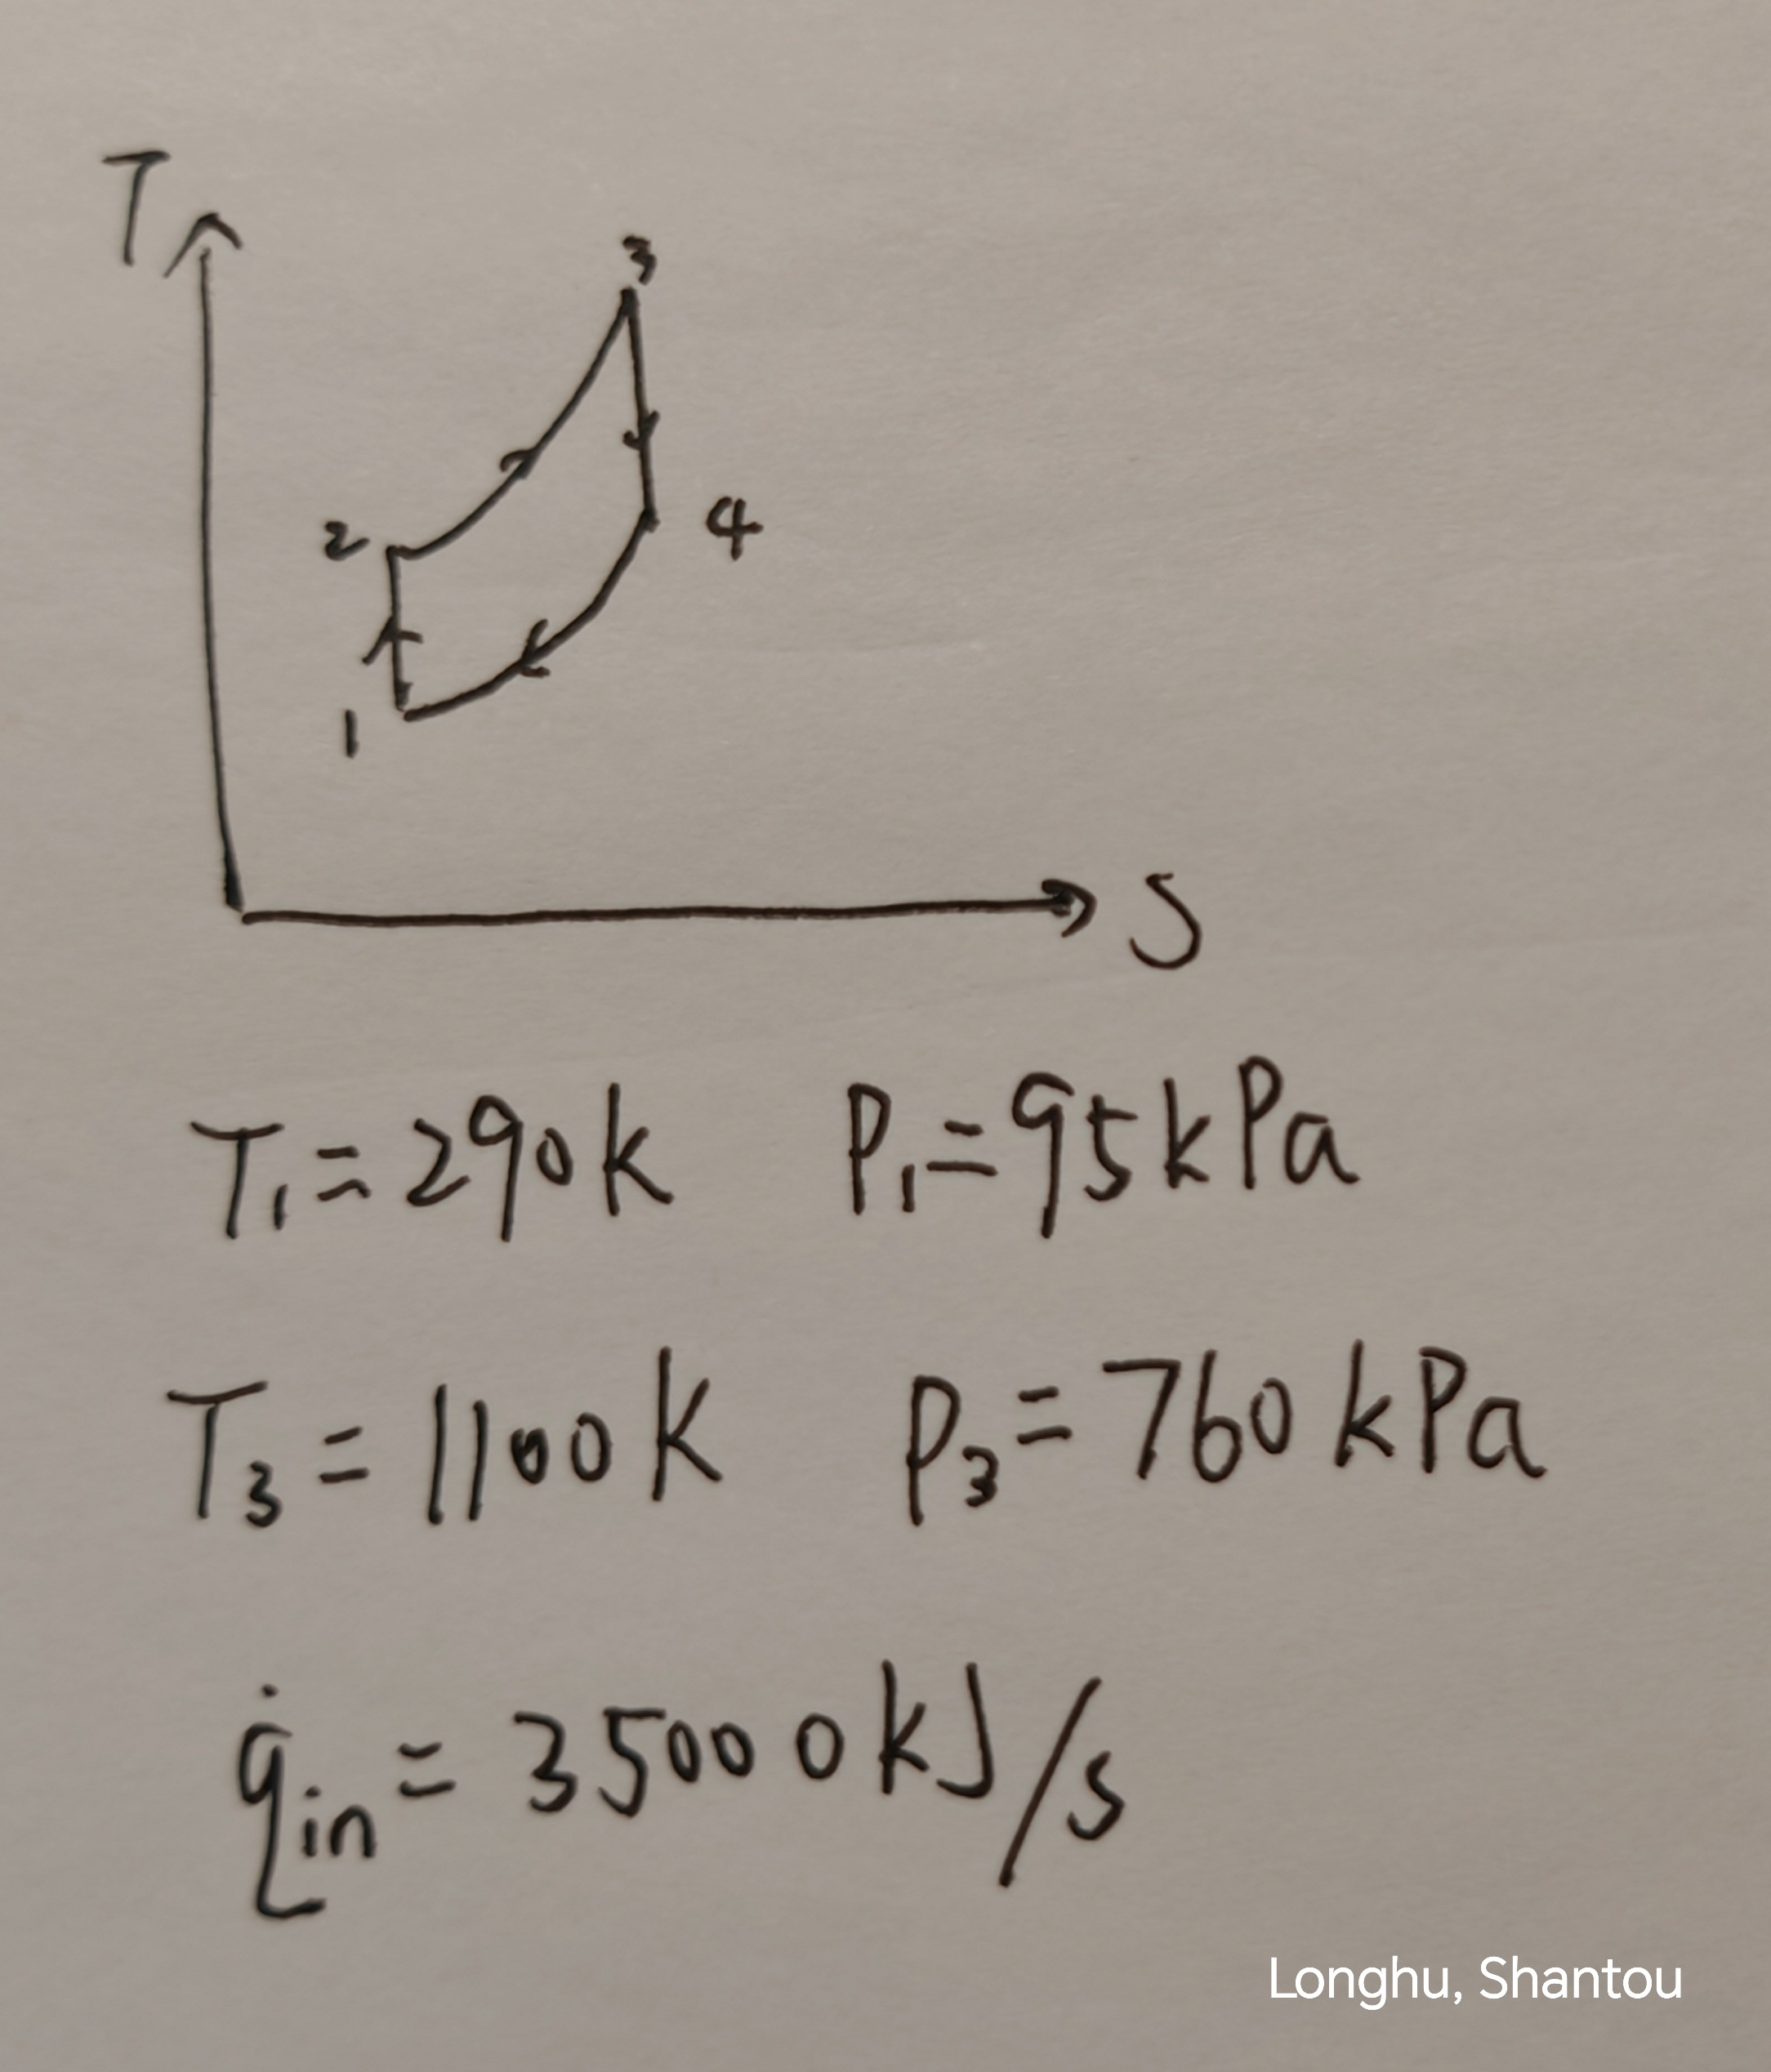 T
3
2
4
1
S
T₁=290k P₁=95kPa
T₃=1100K P₃=760kPa
q̇in=35000kJ/s
Longhu, Shantou